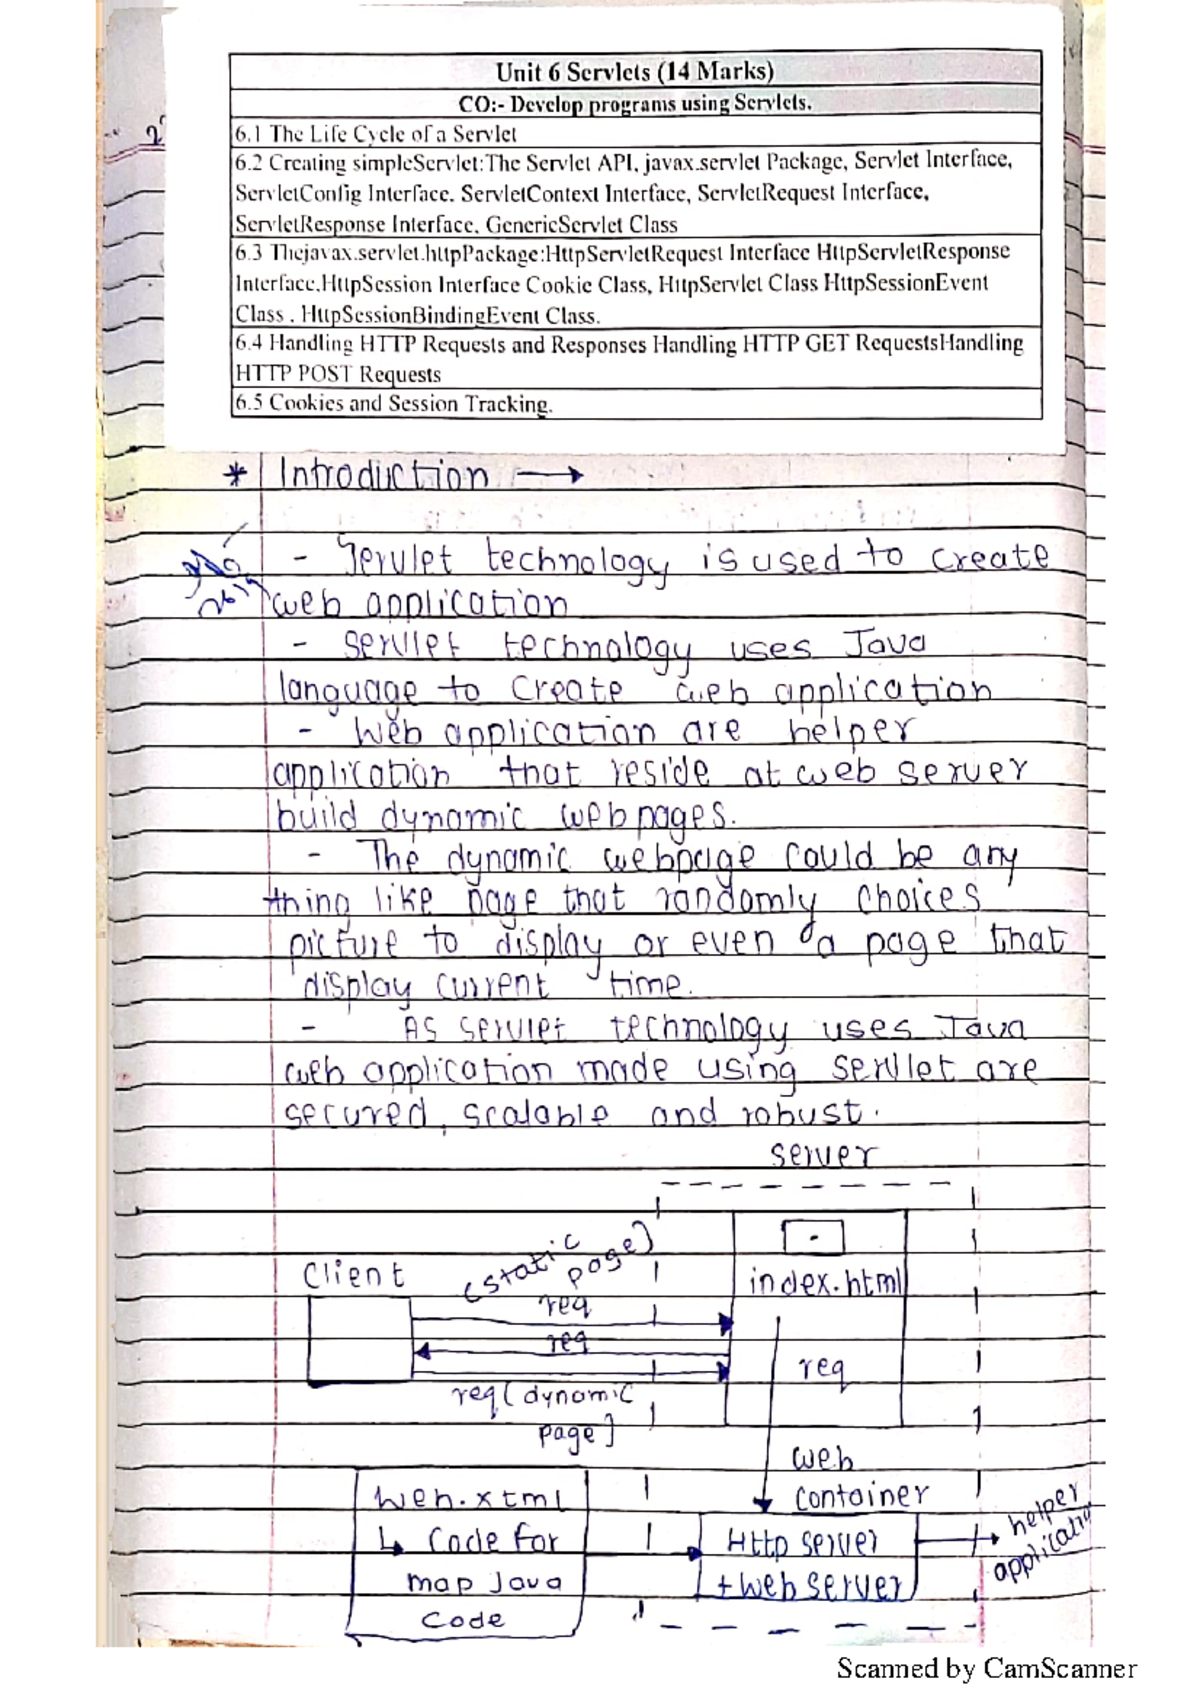 Unit 6 Servlets (14 Marks)
CO:- Develop programs using Servlets.
6.1 The Life Cycle of a Servlet
6.2 Creating simpleServlet:The Servlet API, javax.servlet Package, Servlet Interface,
ServletConfig Interface. ServletContext Interface, ServletRequest Interface,
ServletResponse Interface. GenericServlet Class
6.3 Thejavax.servlet.httpPackage:HttpServletRequest Interface HttpServletResponse
Interface,HttpSession Interface Cookie Class, HttpServlet Class HttpSessionEvent
Class . HttpSessionBindingEvent Class.
6.4 Handling HTTP Requests and Responses Handling HTTP GET RequestsHandling
HTTP POST Requests
6.5 Cookies and Session Tracking.
* Introdiction →
- Servlet technology is used to create
web application
- servlet technology uses Java
language to create web application
- Web application are helper
application that reside at web server
build dynamic webpages.
- The dynamic webpage could be any
thing like page that randomly choices
picture to display or even a page that
display current time.
- As servlet technology uses Java
web application made using servlet are
secured, scalable and robust.
server
(static
page)
Client
index.html
req
req
req
req (dynamic
page)
web
container
web.xtml
↳ Code for
map Java
code
Http server
+ web server
helper
application
Scanned by CamScanner